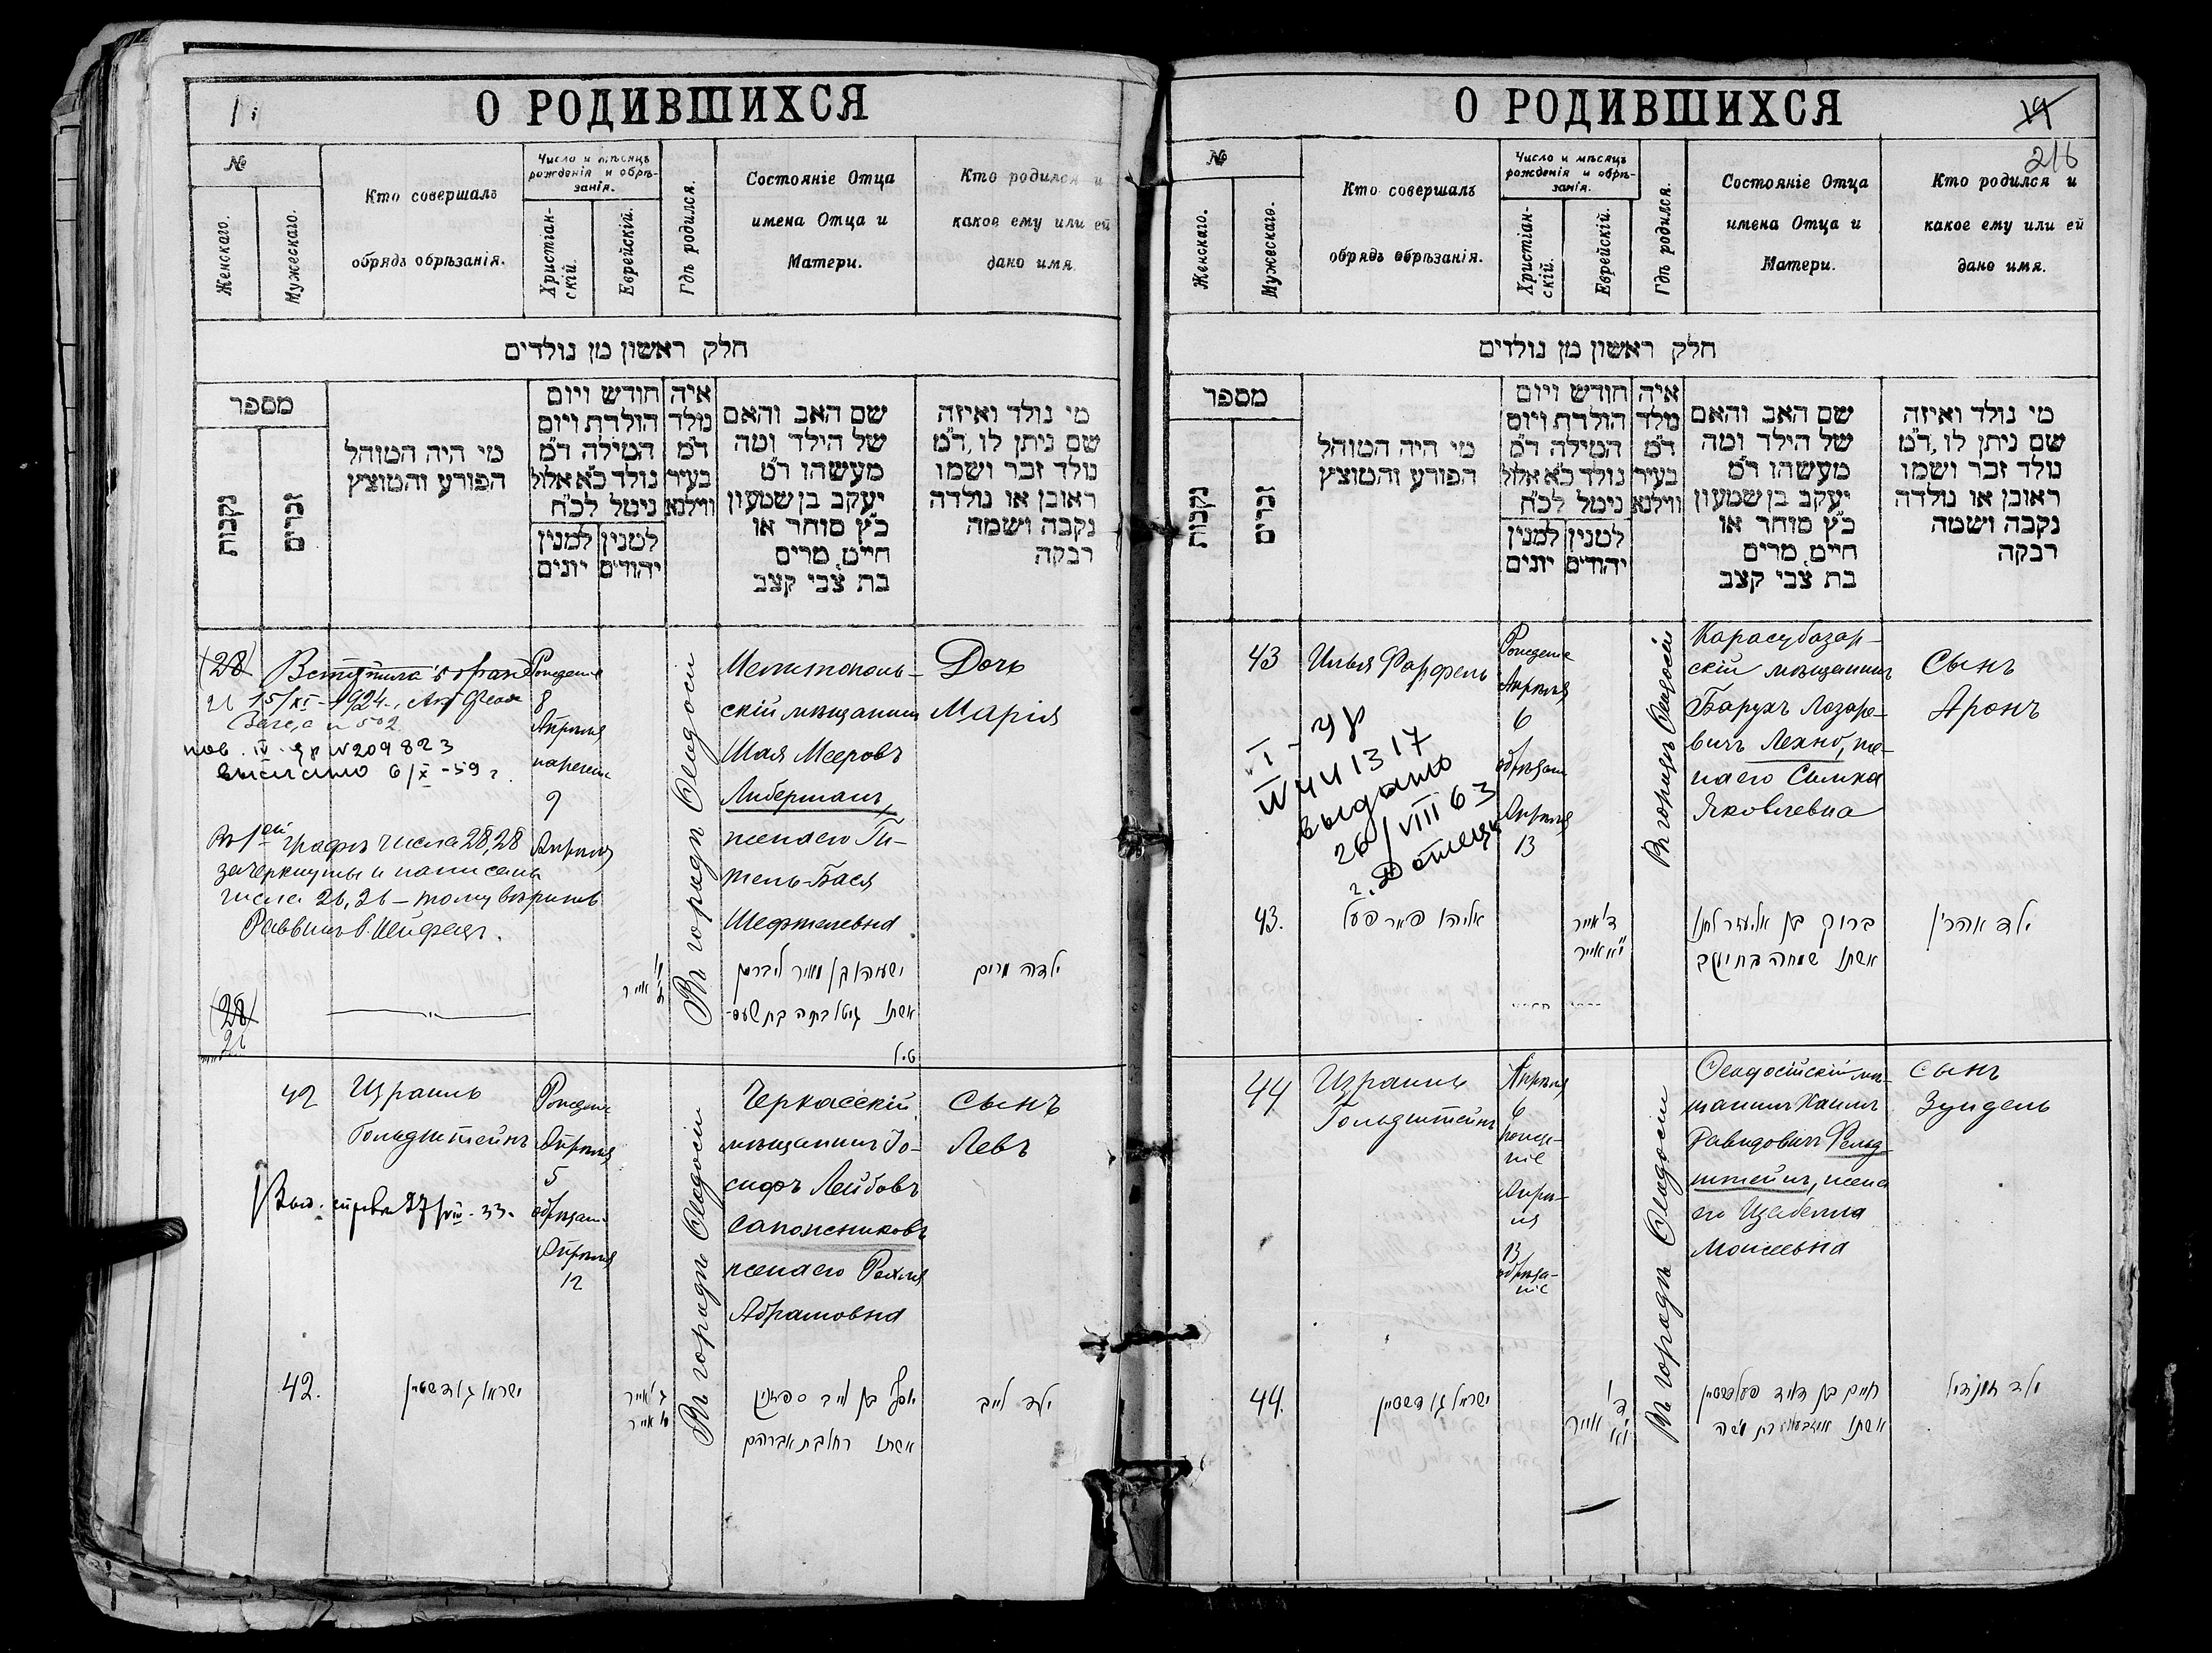 О РОДИВШИХСЯ
№
Женскаго.
Мужескаго.
Кто совершалъ
обрядъ обрѣзанія.
Число и мѣсяцъ
рожденія и обрѣ-
занія.
Христіан-
скій.
Еврейскій.
Гдѣ родился.
Состояніе Отца
имена Отца и
Матери.
Кто родился и
какое ему или ей
дано имя
חלק ראשון מן נולדים
מספר
נקבות
זכרים
מי היה המוהל
הפורע והמוצץ
חודש ויום
הולדת ויום
המילה ד״מ
נולד כ״א אלול
נימל לכ״ח
למנין
יונים
למנין
יהודים
איה
נולד
ד״מ
בעיר
ווילנא
שם האב והאם
של הילד ומה
מעשהו ד״מ
יעקב בן שמעון
כ״ץ סוחר או
חייט מרים
בת צבי קצב
מי נולד ואיזה
שם ניתן לו, ד״מ
נולד זכר ושמו
ראובן או נולדה
נקבה ושמה
רבקה
(28)
26
Вступила в бракъ
15/XI-1924
Загса №502
пов. IV №209823
выписано 6/X-59 г.
Въ 1ой графѣ числа 28, 28
зачеркнуты и написаны
числа 26, 26 — тому вѣрить
Раввинъ
Рожденіе
8
Апрѣля
нареченіе
9
Апрѣля
Въ городѣ Ѳеодосіи
Мелитополь-
скій мѣщанинъ
Шая Мееровъ
Либерманъ,
жена его Ги-
тель-Бася
Шефтелевна.
Дочь
Марія
(28)
26
אייר
ישעיהו בן מאיר ליברמן
אשתו
ילדה מרים
42
Израиль
Гольдштейнъ
Выд. справка 27/VII-33.
Рожденіе
Апрѣля
5
обрѣзаніе
Апрѣля
12
Въ городѣ Ѳеодосіи
Черкасскій
мѣщанинъ Іо-
сифъ Лейбовъ
Сапожниковъ
жена его Рахиля
Абрамовна
Сынъ
Левъ
42.
ישראל גולדשטיין
אייר
אייר
יוסף בן לייב
אשתו רחל בת אברהם
ילד לייב
О РОДИВШИХСЯ
19
216
№
Женскаго.
Мужескаго.
Кто совершалъ
обрядъ обрѣзанія.
Число и мѣсяцъ
рожденія и обрѣ-
занія.
Христіан-
скій.
Еврейскій.
Гдѣ родился.
Состояніе Отца
имена Отца и
Матери.
Кто родился и
какое ему или ей
дано имя.
חלק ראשון מן נולדים
מספר
נקבות
זכרים
מי היה המוהל
הפורע והמוצץ
חודש ויום
הולדת ויום
המילה ד״מ
נולד כ״א אלול
נימל לכ״ח
למנין
יונים
למנין
יהודים
איה
נולד
ד״מ
בעיר
ווילנא
שם האב והאם
של הילד ומה
מעשהו ד״מ
יעקב בן שמעון
כ״ץ סוחר או
חייט מרים
בת צבי קצב
מי נולד ואיזה
שם ניתן לו, ד״מ
נולד זכר ושמו
ראובן או נולדה
נקבה ושמה
רבקה
43
Илья Фарфель
I-УР
№441317
выдано
26/VIII 63
г. Донецк
Рожденіе
Апрѣля
6
обрѣзаніе
Апрѣля
13
Въ городѣ Ѳеодосіи
Карасубазар-
скій мѣщанинъ
Барухъ Лазаре-
вичъ Лехно, же-
на его Симха
Яковлевна
Сынъ
Аронъ
43.
אליהו פארפעל
ד׳ אייר
י״א אייר
ברוך בן אליעזר לחנו
אשתו שמחה בת יעקב
ילד אהרן
44
Израиль
Гольдштейнъ
Апрѣля
6
рожде-
ніе
Апрѣ-
ля
13
обрѣза-
ніе
Въ городѣ Ѳеодосіи
Ѳеодосійскій мѣ-
щанинъ Хаимъ
Давидовичъ Фельд-
штейнъ, жена
его Изабелла
Моисеевна
Сынъ
Зундель
44.
ישראל גולדשטיין
ד׳
י״א אייר
חיים בן דוד פעלדשטיין
אשתו איזבעלא בת משה
ילד זונדיל